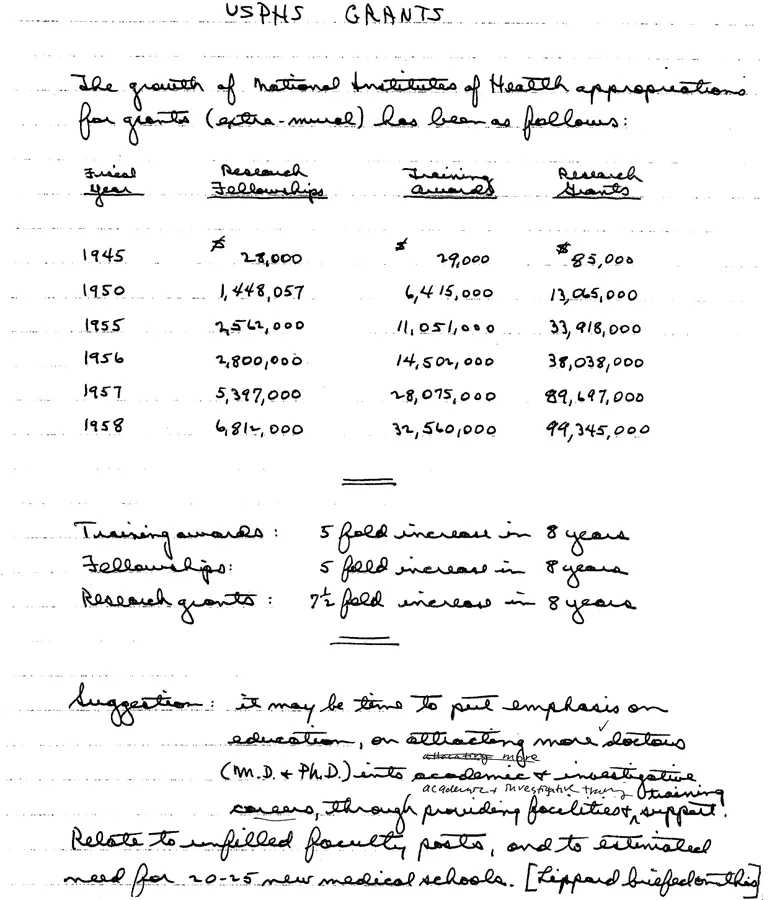 USPHS GRANTS
The growth of National Institutes of Health appropriations
for grants (extra-mural) has been as follows:
Fiscal Year Research Fellowships Training awards Research Grants
1945 $ 28,000 $ 29,000 $ 85,000
1950 1,448,057 6,415,000 13,065,000
1955 2,562,000 11,051,000 33,918,000
1956 2,800,000 14,502,000 38,038,000
1957 5,397,000 28,075,000 89,697,000
1958 6,812,000 32,560,000 99,345,000
Training awards: 5 fold increase in 8 years
Fellowships: 5 fold increase in 8 years
Research grants: 7½ fold increase in 8 years
Suggestion: it may be time to put emphasis on
education, on attracting more doctors
(M.D. & Ph.D.) into academic & investigative
academic & investigative training
careers, through providing facilities & support.
Relate to unfilled faculty posts, and to estimated
need for 20-25 new medical schools. [Lippard briefed on this]